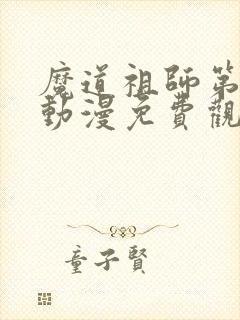 魔道祖師第
動漫免費觀
童子賢